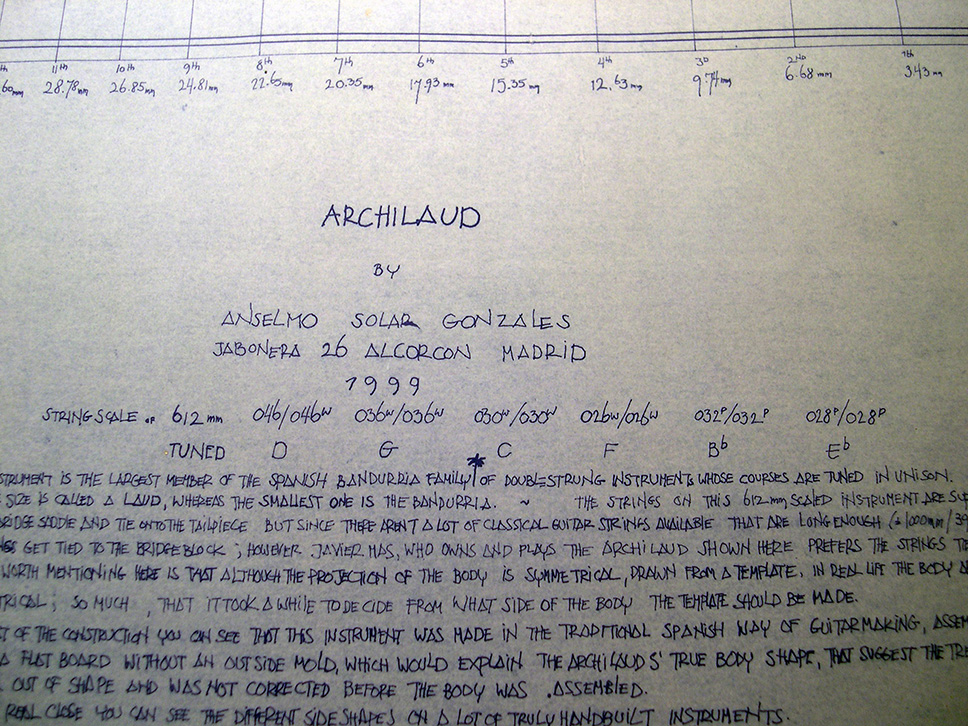 th 11th 10th 9th 8th 7th 6th 5th 4th 3D 2ND 1th
60mm 28.78mm 26.85mm 24.81mm 22.65mm 20.35mm 17.93mm 15.35mm 12.63mm 9.74mm 6.68mm 3.43mm
ARCHILAUD
BY
ANSELMO SOLAR GONZALES
JABONERA 26 ALCORCON MADRID
1999
STRING SCALE OF 612mm 046/046W 036W/036W 030W/030W 026W/026W 032P/032P 028P/028P
TUNED D G C F Bb Eb
STRUMENT IS THE LARGEST MEMBER OF THE SPANISH BANDURRIA FAMILY OF DOUBLESTRUNG INSTRUMENTS WHOSE COURSES ARE TUNED IN UNISON.
SIZE IS CALLED A LAUD, WHEREAS THE SMALLEST ONE IS THE BANDURRIA. ~ THE STRINGS ON THIS 612mm SCALED INSTRUMENT ARE SUP
BRIDGE SADDLE AND TIE ONTO THE TAILPIECE BUT SINCE THERE ARENT A LOT OF CLASSICAL GUITAR STRINGS AVAILABLE THAT ARE LONG ENOUGH (± 1000mm/39
NGS GET TIED TO THE BRIDGE BLOCK; HOWEVER JAVIER MAS, WHO OWNS AND PLAYS THE ARCHILAUD SHOWN HERE PREFERS THE STRINGS TIE
WORTH MENTIONING HERE IS THAT ALTHOUGH THE PROJECTION OF THE BODY IS SYMMETRICAL, DRAWN FROM A TEMPLATE. IN REAL LIFE THE BODY A
TRICAL; SO MUCH, THAT IT TOOK A WHILE TO DECIDE FROM WHAT SIDE OF THE BODY THE TEMPLATE SHOULD BE MADE.
T OF THE CONSTRUCTION YOU CAN SEE THAT THIS INSTRUMENT WAS MADE IN THE TRADITIONAL SPANISH WAY OF GUITARMAKING, ASSEM
A FLAT BOARD WITHOUT AN OUTSIDE MOLD, WHICH WOULD EXPLAIN THE ARCHILAUDS' TRUE BODY SHAPE, THAT SUGGEST THE TRE
OUT OF SHAPE AND WAS NOT CORRECTED BEFORE THE BODY WAS ASSEMBLED.
REAL CLOSE YOU CAN SEE THE DIFFERENT SIDE SHAPES ON A LOT OF TRULY HANDBUILT INSTRUMENTS.